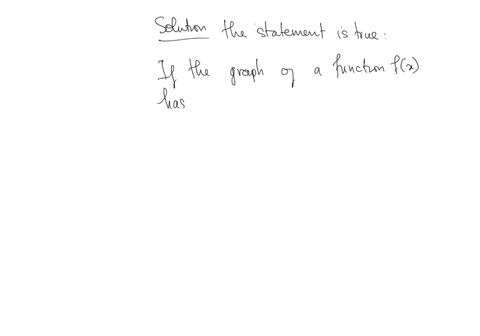 Solution the statement is true:
If the graph of a function f(x)
has